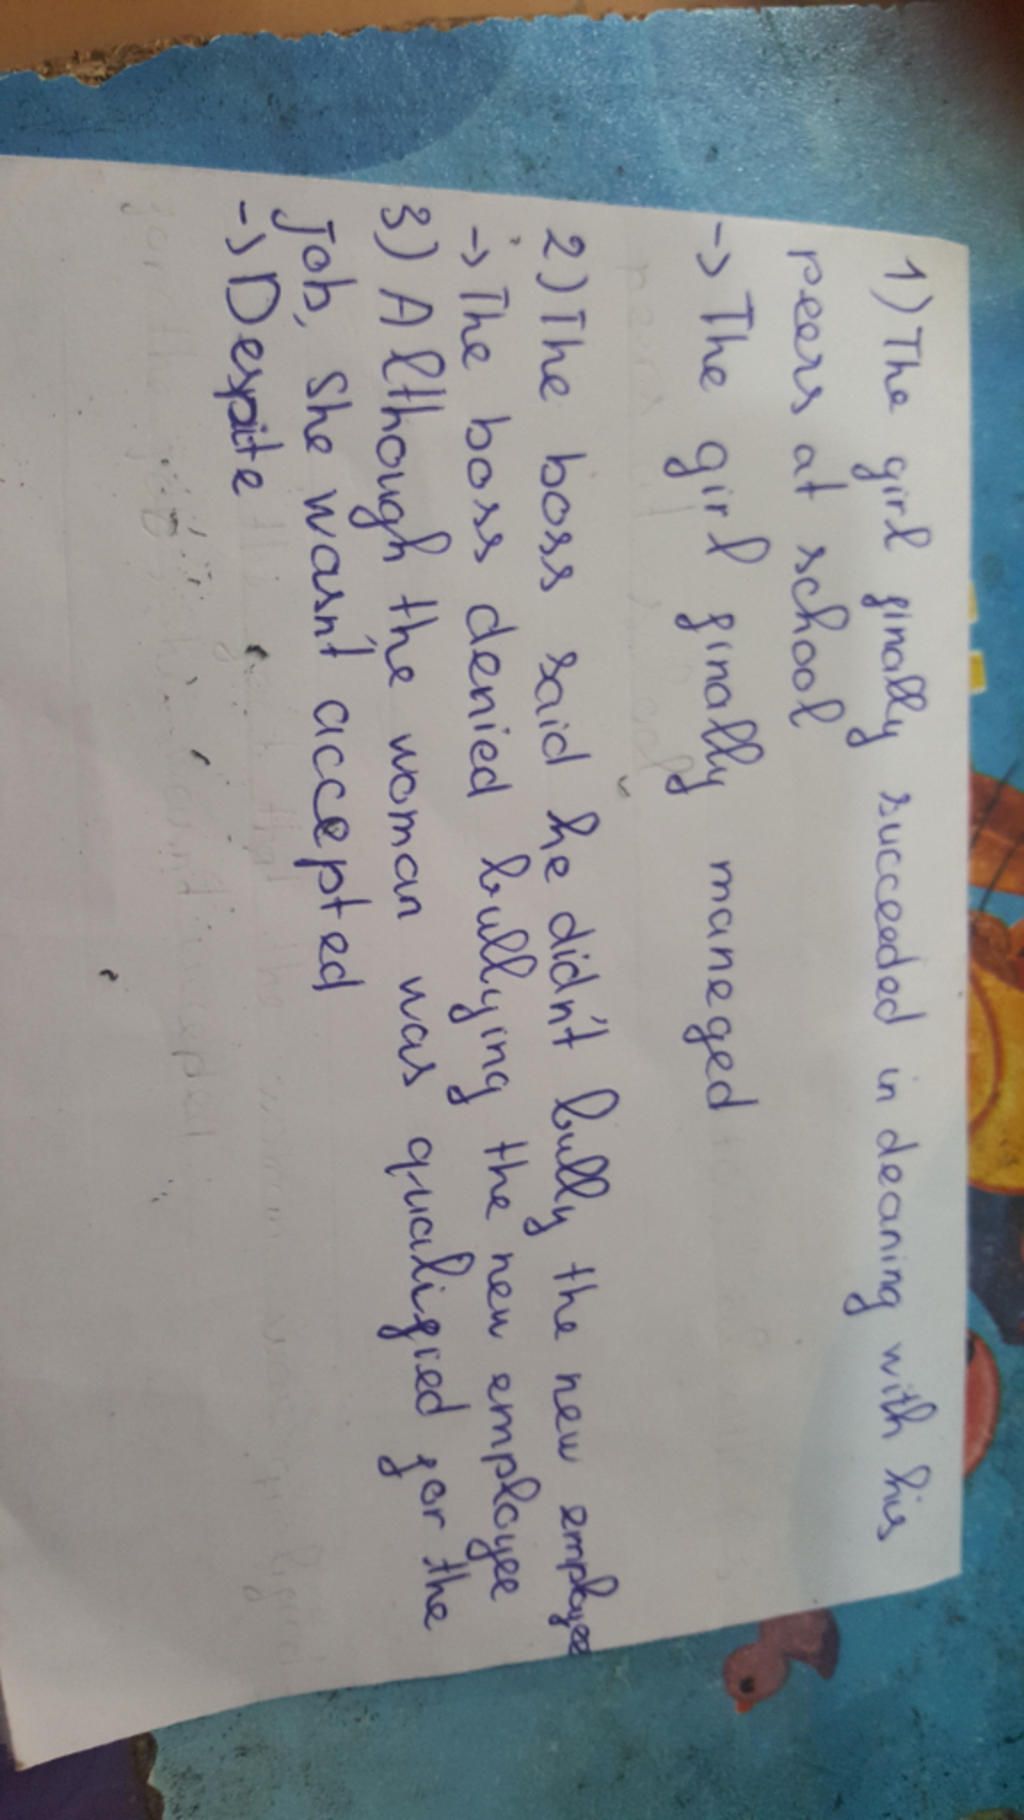 1) The girl finally succeeded in deaning with his
peers at school
-> The girl finally maneged
2) The boss said he didn't bully the new employee
-> The boss denied bullying the new employee
3) Although the woman was qualified for the
Job, she wasn't accepted
-> Despite